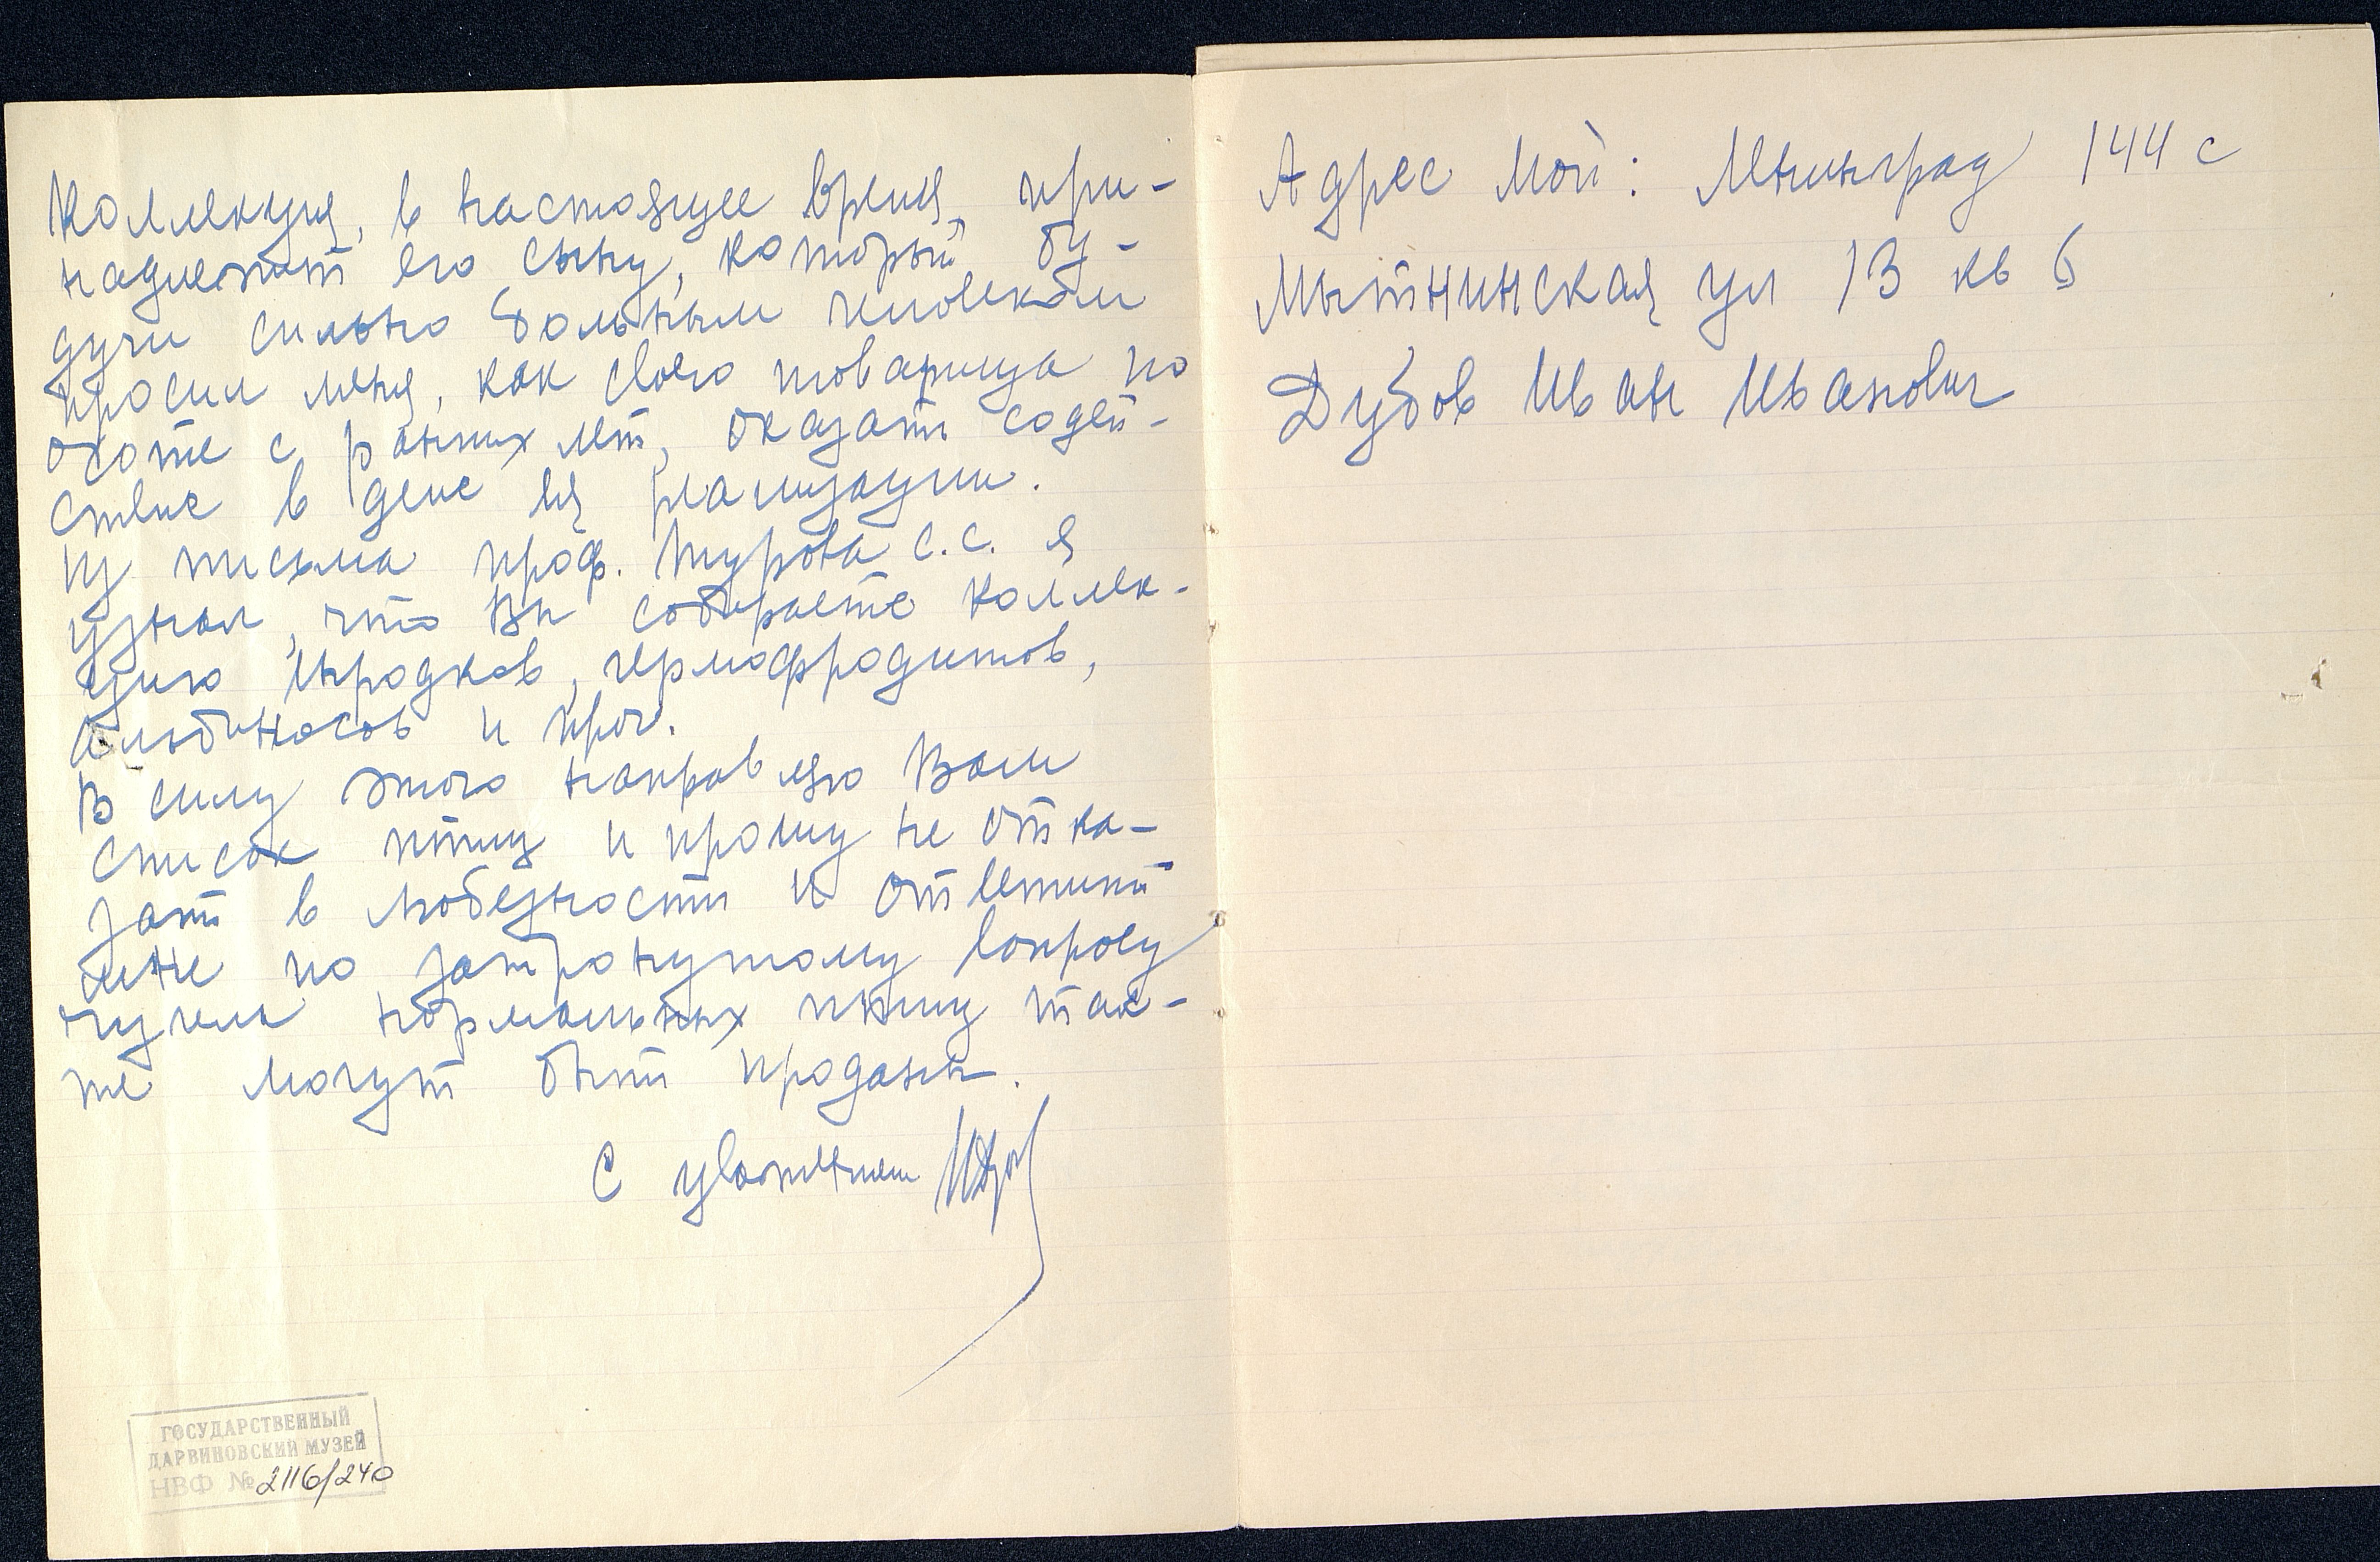 Коллекция, в настоящее время, при-
надлежит его сыну, который бу-
дучи сильно больным человеком
просил меня, как своего товарища по
охоте с ранних лет, оказать содей-
ствие в деле ея реализации.
Из письма проф. Турова С.С. я
узнал, что Вы собираете коллек-
цию выродков, гермофродитов,
альбиносов и проч.
В силу этого направляю Вам
список птиц и прошу не отка-
зать в любезности и ответить
мне по затронутому вопросу
чучела нормальных птиц так-
же могут быть проданы.
С уважением
ГОСУДАРСТВЕННЫЙ
ДАРВИНОВСКИЙ МУЗЕЙ
НВФ № 2116/240
Адрес мой: Ленинград 144 с
Мытнинская ул 13 кв 6
Дубов Иван Иванович